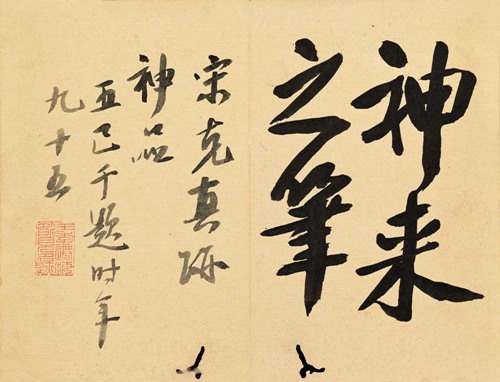 神来
之筆
宋克真跡
神品
王己千題时年
九十五